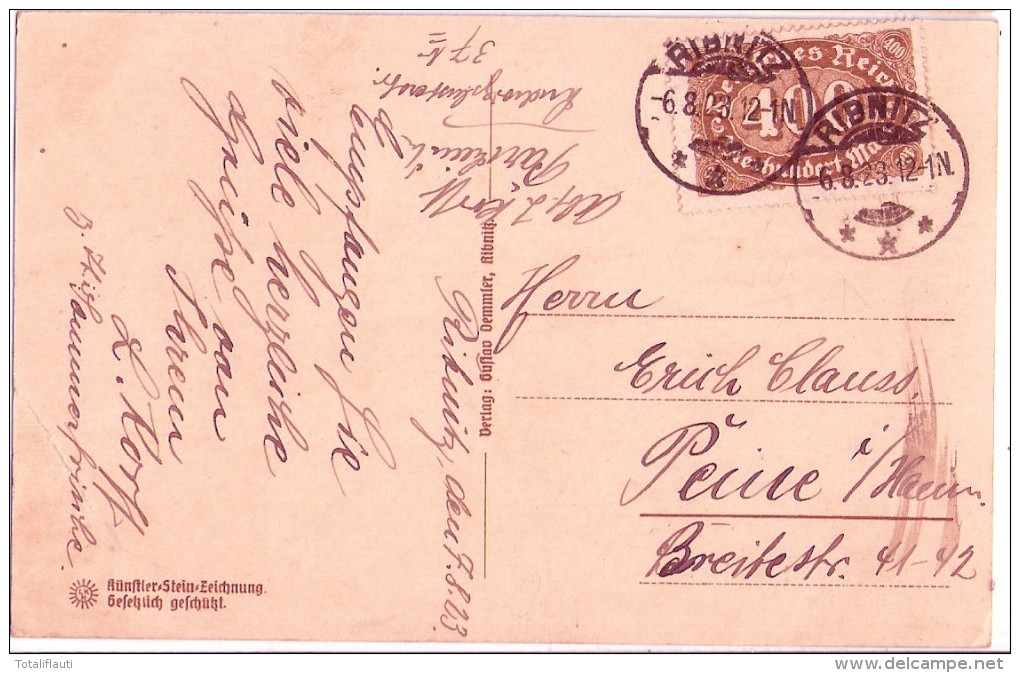 Ribnitz, den 7.8.23
Empfangen Sie
viele herzliche
Grüße von
Ihrem
L. Korff
z. Zt. Sommerfrische.
37 II
Parchim
Verlag: Gustav Demmler, Ribnitz.
Künstler-Stein-Zeichnung.
Gesetzlich geschützt.
Deutsches Reich
400
400
Vierhundert Mark
RIBNITZ
-6.8.23.12-1N
* * *
RIBNITZ
-6.8.23.12-1N.
* * *
Herrn
Erich Clauss,
Peine i/Hann.
Breitestr. 41-42
Totaliflauti
delcampe.net